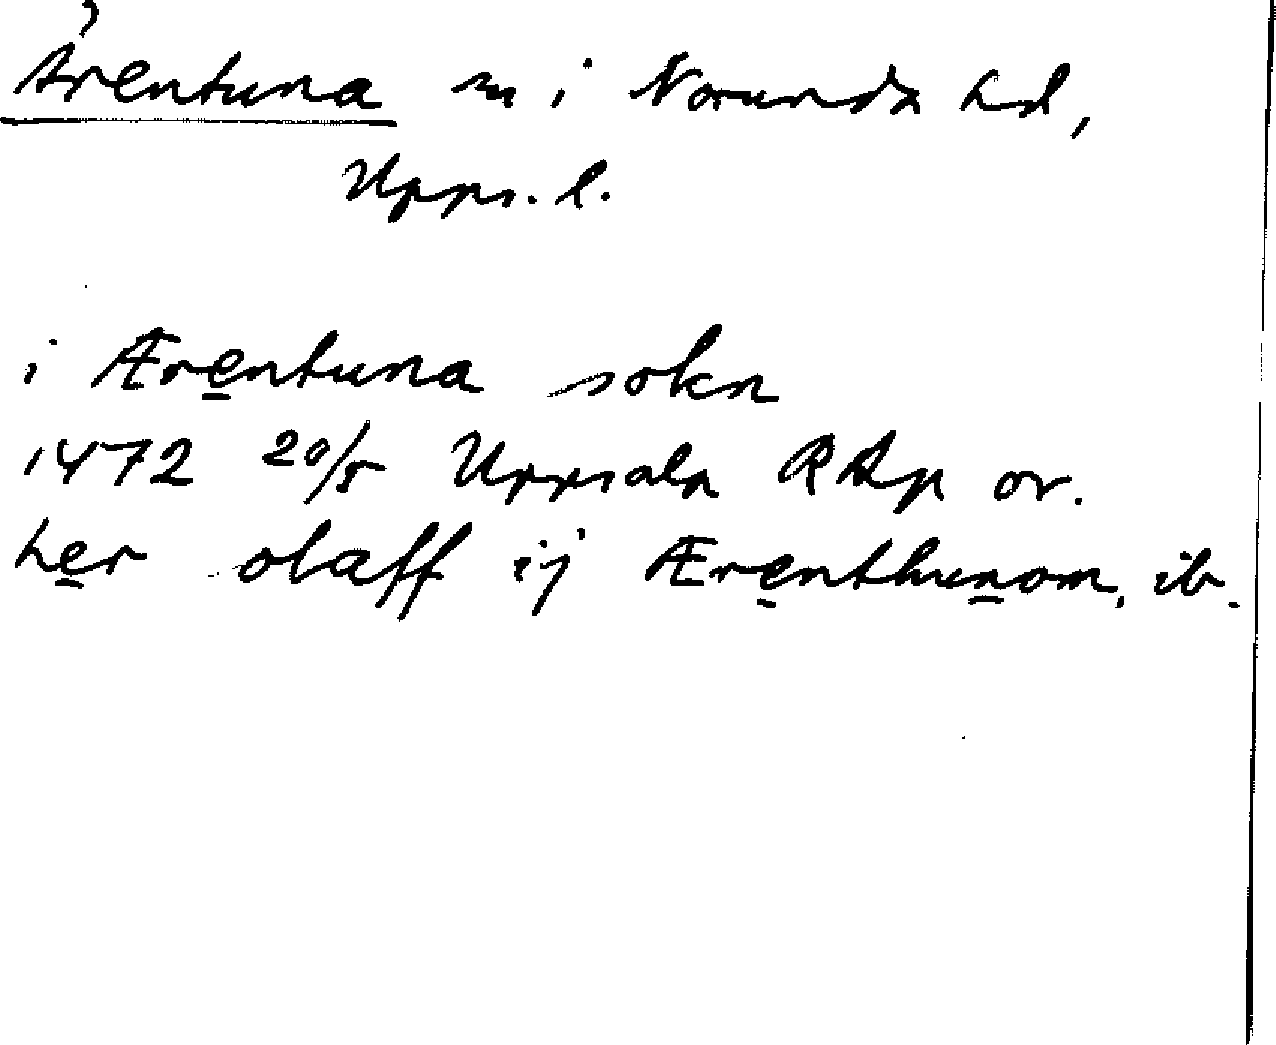 Ärentuna sn i Norunda hd,
Upps. l.
i Ærentuna sokn
1472 20/5 Uppsala RAp or.
her olaff ij Ærenthunom, ib.